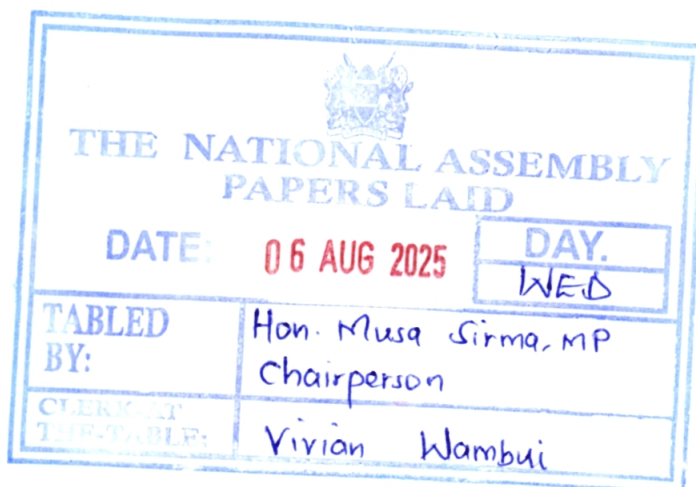 THE NATIONAL ASSEMBLY
PAPERS LAID
DATE: 06 AUG 2025
DAY.
WED
TABLED BY:
Hon. Musa Sirma, MP
Chairperson
CLERK-AT THE-TABLE:
Vivian Wambui